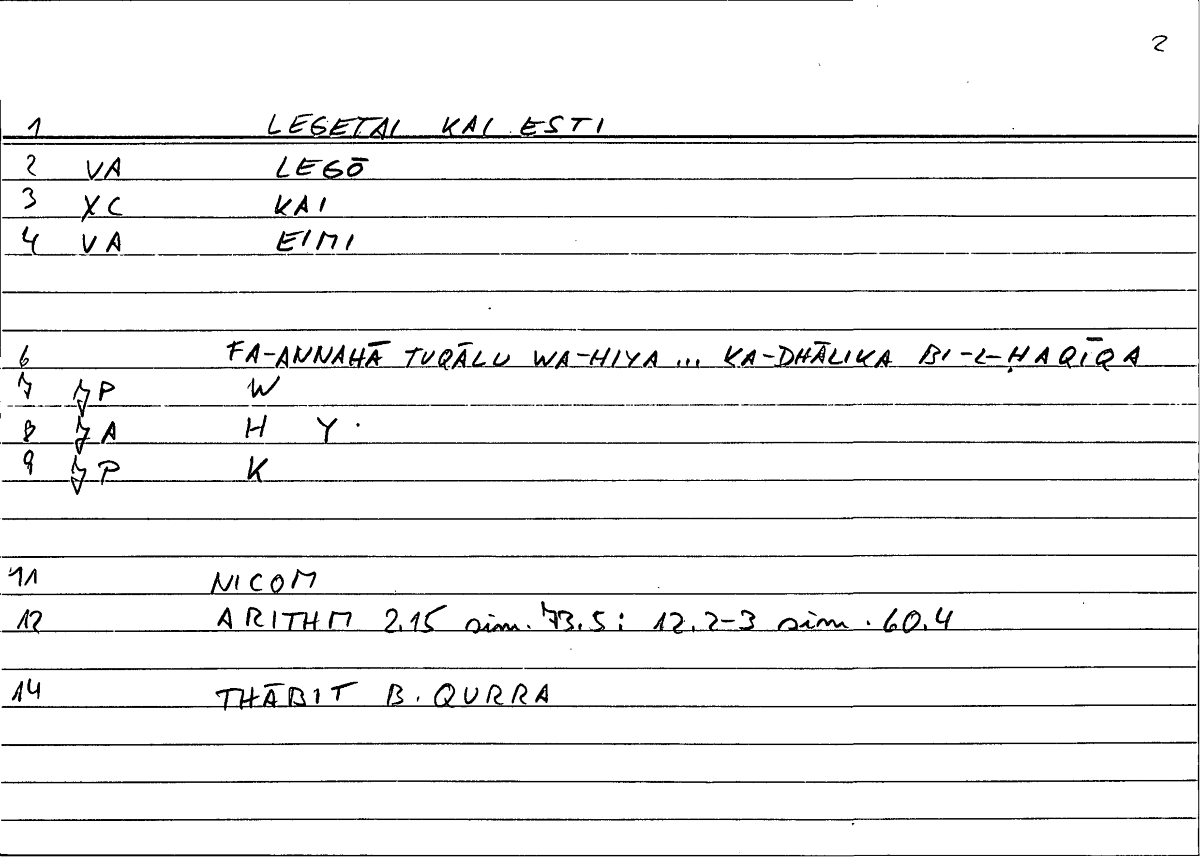 2
1 LEGETAI KAI ESTI
2 VA LEGŌ
3 XC KAI
4 VA EIMI
6 FA-ANNAHĀ TUQĀLU WA-HIYA ... KA-DHĀLIKA BI-L-ḤAQĪQA
7 P W
8 A H Y
9 P K
11 NICOM
12 ARITHM 2.15 sim. 73.5 : 12.2-3 sim. 60.4
14 THĀBIT B. QURRA